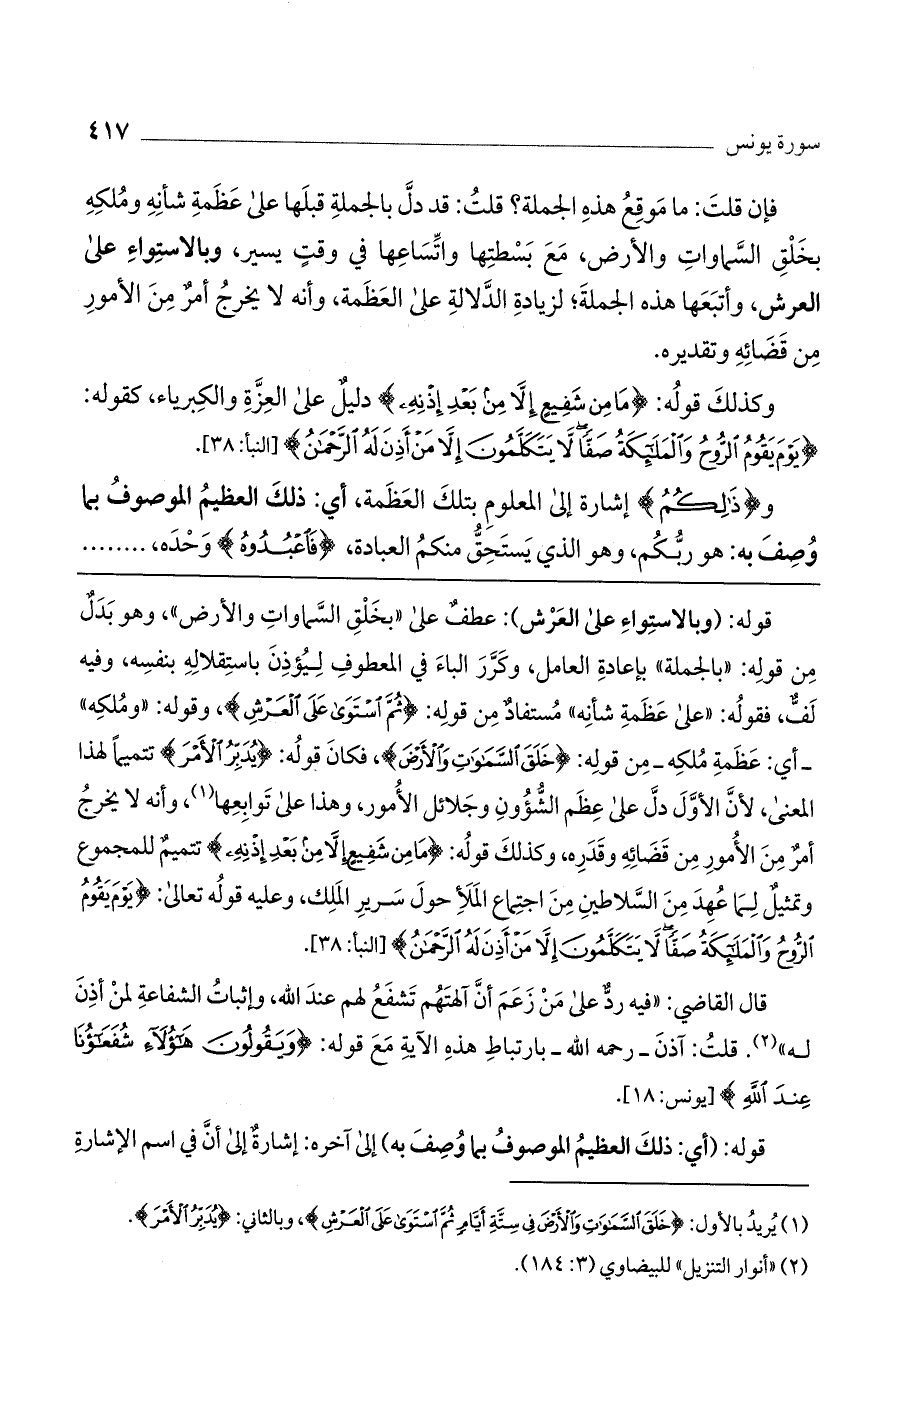 سورة يونس ٤١٧
فإن قلتَ: ما مَوقِعُ هذهِ الجملة؟ قلتُ: قد دلَّ بالجملةِ قبلَها على عَظَمةِ شأنِهِ ومُلكِهِ
بخَلْقِ السَّماواتِ والأرض، مَعَ بَسْطتِها واتِّسَاعِها في وقتٍ يسير، وبالاستِواءِ على
العرش، وأتبَعَها هذه الجملةَ؛ لزيادةِ الدَّلالةِ على العَظَمة، وأنه لا يَخرجُ أمرٌ مِنَ الأمورِ
مِن قَضَائِهِ وتقديره.
وكذلكَ قولُه: ﴿مَا مِن شَفِيعٍ إِلَّا مِنۢ بَعْدِ إِذْنِهِۦ﴾ دليلٌ على العِزَّةِ والكِبرياء، كقوله:
﴿يَوْمَ يَقُومُ ٱلرُّوحُ وَٱلْمَلَٰٓئِكَةُ صَفًّا ۖ لَّا يَتَكَلَّمُونَ إِلَّا مَنْ أَذِنَ لَهُ ٱلرَّحْمَٰنُ﴾ [النبأ: ٣٨].
و﴿ذَٰلِكُمُ﴾ إشارة إلى المعلومِ بتلكَ العَظَمة، أي: ذلكَ العظيمُ الموصوفُ بما
وُصِفَ به: هو ربُّكُم، وهو الذي يَستَحِقُّ منكمُ العبادة، ﴿فَٱعْبُدُوهُ﴾ وَحْدَه، ........
قوله: (وبالاستِواءِ على العَرْش): عطفٌ على «بخَلْقِ السَّماواتِ والأرض»، وهو بَدَلٌ
مِن قولِه: «بالجملة» بإعادةِ العامل، وكرَّرَ الباءَ في المعطوفِ لِيُؤذِنَ باستِقلالِهِ بنفسِه، وفيه
لَفٌّ، فقولُه: «على عَظَمةِ شأنِه» مُستفادٌ مِن قولِه: ﴿ثُمَّ ٱسْتَوَىٰ عَلَى ٱلْعَرْشِ﴾، وقوله: «ومُلكِه»
ـ أي: عَظَمةِ مُلكِه ـ مِن قولِه: ﴿خَلَقَ ٱلسَّمَٰوَٰتِ وَٱلْأَرْضَ﴾، فكانَ قولُه: ﴿يُدَبِّرُ ٱلْأَمْرَ﴾ تتميماً لهذا
المعنى، لأنَّ الأوَّلَ دلَّ على عِظَمِ الشُّؤُونِ وجَلائلِ الأُمور، وهذا على تَوابِعِها(١)، وأنه لا يَخرجُ
أمرٌ مِنَ الأُمورِ مِن قَضَائِهِ وقَدَرِه، وكذلكَ قولُه: ﴿مَا مِن شَفِيعٍ إِلَّا مِنۢ بَعْدِ إِذْنِهِۦ﴾ تتميمٌ للمجموعِ
وتمثيلٌ لِما عُهِدَ مِنَ السَّلاطينِ مِنَ اجتِماعِ المَلَأِ حولَ سَريرِ المَلِك، وعليه قولُه تعالى: ﴿يَوْمَ يَقُومُ
ٱلرُّوحُ وَٱلْمَلَٰٓئِكَةُ صَفًّا ۖ لَّا يَتَكَلَّمُونَ إِلَّا مَنْ أَذِنَ لَهُ ٱلرَّحْمَٰنُ﴾ [النبأ: ٣٨].
قال القاضي: «فيه ردٌّ على مَنْ زَعَمَ أنَّ آلهتَهُم تَشفَعُ لهم عندَ الله، وإثباتُ الشفاعةِ لمنْ أذِنَ
له»(٢). قلتُ: آذنَ ـ رحمه الله ـ بارتباطِ هذهِ الآيةِ مَعَ قوله: ﴿وَيَقُولُونَ هَٰٓؤُلَآءِ شُفَعَٰٓؤُنَا
عِندَ ٱللَّهِ﴾ [يونس: ١٨].
قوله: (أي: ذلكَ العظيمُ الموصوفُ بما وُصِفَ به) إلى آخره: إشارةٌ إلى أنَّ في اسمِ الإشارةِ
(١) يُريدُ بالأول: ﴿خَلَقَ ٱلسَّمَٰوَٰتِ وَٱلْأَرْضَ فِى سِتَّةِ أَيَّامٍ ثُمَّ ٱسْتَوَىٰ عَلَى ٱلْعَرْشِ﴾، وبالثاني: ﴿يُدَبِّرُ ٱلْأَمْرَ﴾.
(٢) «أنوار التنزيل» للبيضاوي (٣: ١٨٤).